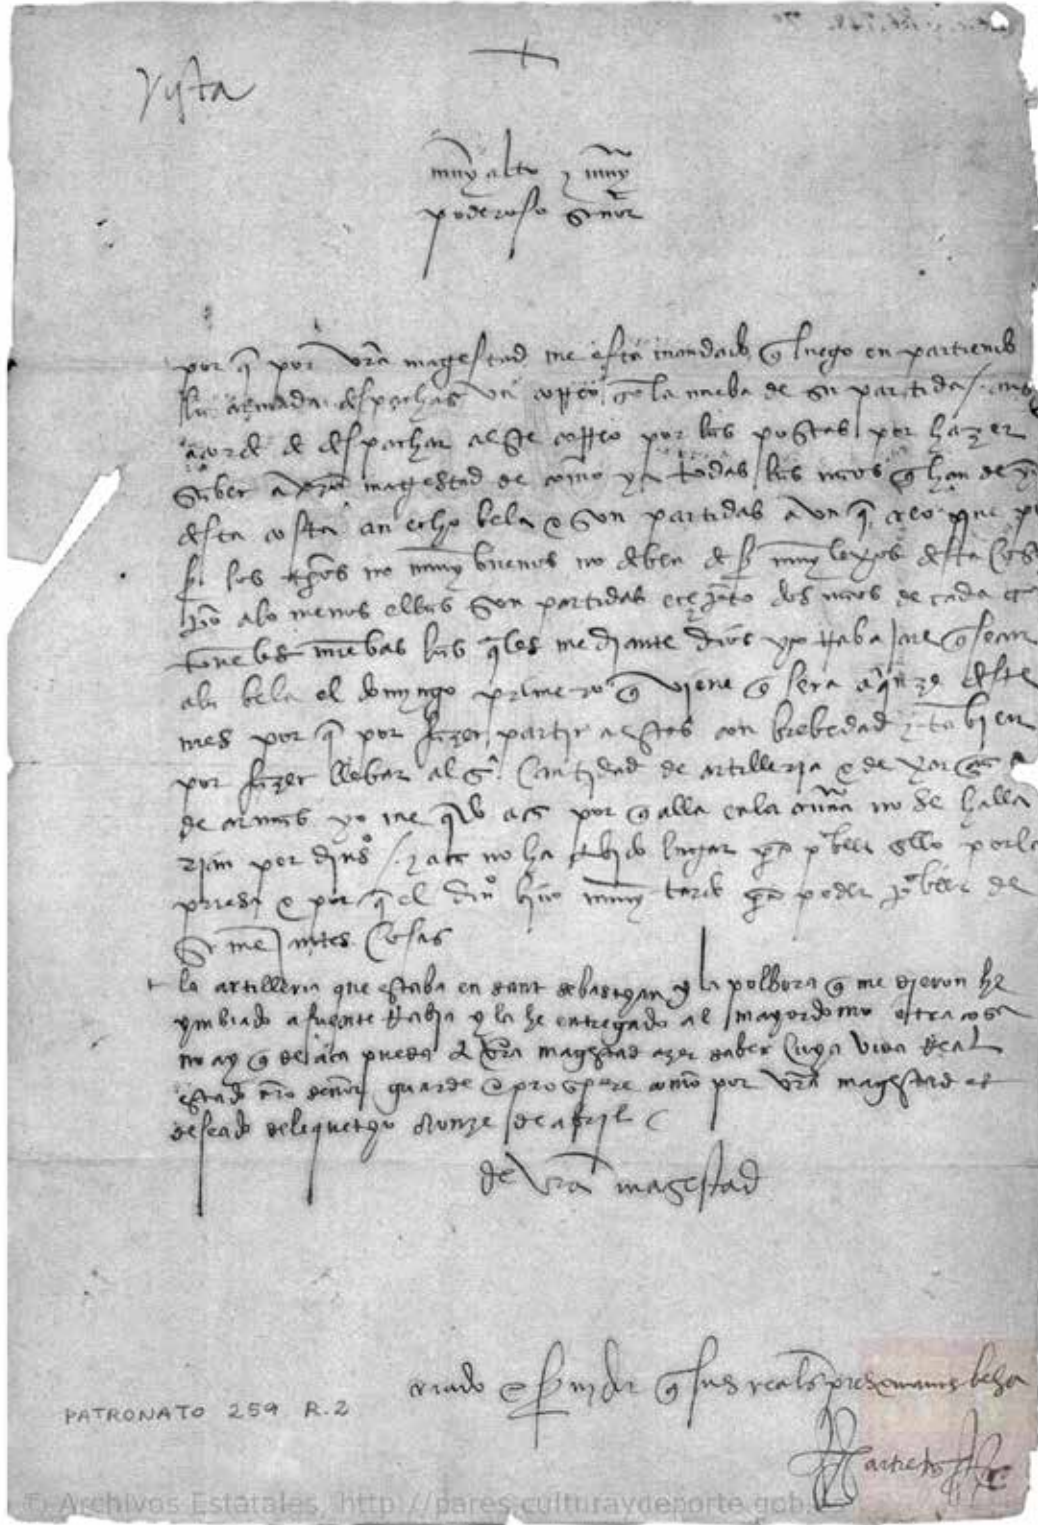 Vysta
muy alto y muy
poderoso señor
por q por vra magestad me esta mandado q luego en partiendo
la armada despachas un correo con la nueba de su partida /
acorde de despachar a este correo por las postas por hazer
saber a vra magestad de como ya todas las naos q han de yr
desta costa an echo bela e son partidas a un q creo que
los no muy buenos no deben de ser muy lexos desta
pero a lo menos ellas son partidas dos naos de cada
toneles nuebas las qles mediante dios yo trabajare q sean
a la bela el domyngo primero q viene q sera a quinze deste
mes por q por hazer partir a estos con brebedad y tabien
por hazer llebar alg cantidad de artilleria e de
de armas yo me q aca por q alla en la cruña no se halla
rian por dins / y aca no ha abido lugar pa pbeer ello por la
priesa e por q el din bino muy tarde pa poder pbeer de
semejantes cosas
+ la artilleria que estaba en sant sebastyan y la polbora q me dieron he
ymbiado a fuente Rabia y la he entregado al mayordomo otra cosa
no ay q de aca pueda a vra magestad azer saber cuya vida Real
estado nro señor guarde e prospere como por vra magestad es
deseado de lequetyo a onze de abril
de vra magestad
criado e servidor q sus reales pies e manos besa
PATRONATO 259 R.2
© Archivos Estatales, http://pares.culturaydeporte.gob.